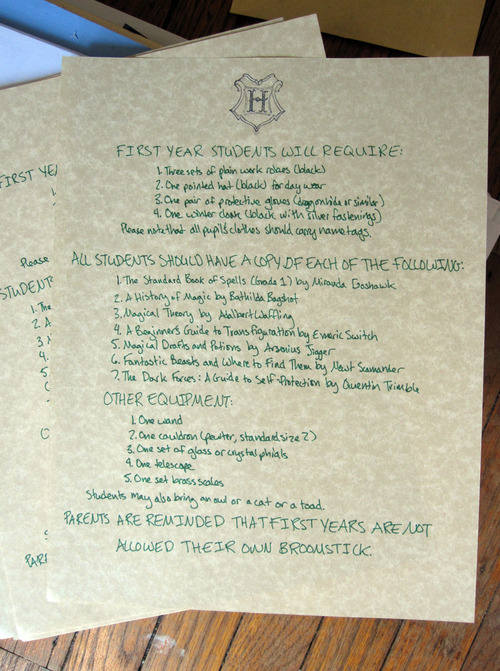 H
FIRST YEAR STUDENTS WILL REQUIRE:
1. Three sets of plain work robes (black)
2. One pointed hat (black) for day wear
3. One pair of protective gloves (dragon hide or similar)
4. One winter cloak (black with silver fastenings)
Please note that all pupil's clothes should carry name tags.
ALL STUDENTS SHOULD HAVE A COPY OF EACH OF THE FOLLOWING:
1. The Standard Book of Spells (Grade 1) by Miranda Goshawk
2. A History of Magic by Bathilda Bagshot
3. Magical Theory by Adalbert Waffling
4. A Beginner's Guide to Transfiguration by Emeric Switch
5. Magical Drafts and Potions by Arsenius Jigger
6. Fantastic Beasts and Where to Find Them by Newt Scamander
7. The Dark Forces: A Guide to Self-Protection by Quentin Trimble
OTHER EQUIPMENT:
1. One wand
2. One cauldron (pewter, standard size 2)
3. One set of glass or crystal phials
4. One telescope
5. One set brass scales
Students may also bring an owl or a cat or a toad.
PARENTS ARE REMINDED THAT FIRST YEARS ARE NOT
ALLOWED THEIR OWN BROOMSTICK.
FIRST YE
Please
STUDENT
1. The
2. A
3.
4.
5.
O
PAR